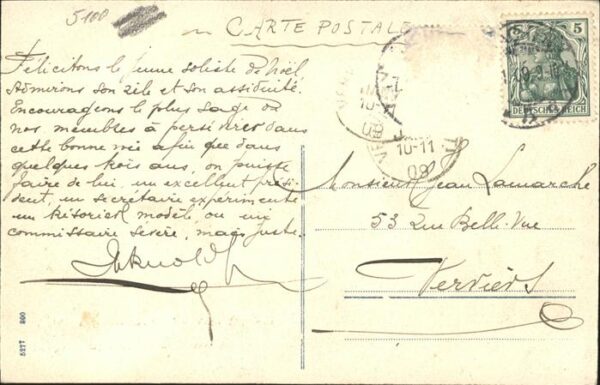 5100
CARTE POSTALE
5
DEUTSCHES REICH
Félicitons le jeune soliste de Noël,
Admirons son zèle et son assiduité.
Encourageons le plus sage de
nos membres à persévérer dans
cette bonne voie afin que dans
quelques mois ans, on puisse
faire de lui, un excellent prési-
dent, un secrétaire expérimenté
un trésorier modèle, ou un
commissaire sévère, mais juste.
10-11
09
Monsieur Jean Lamarche
53 Rue Belle-Vue
Verviers
5277 890